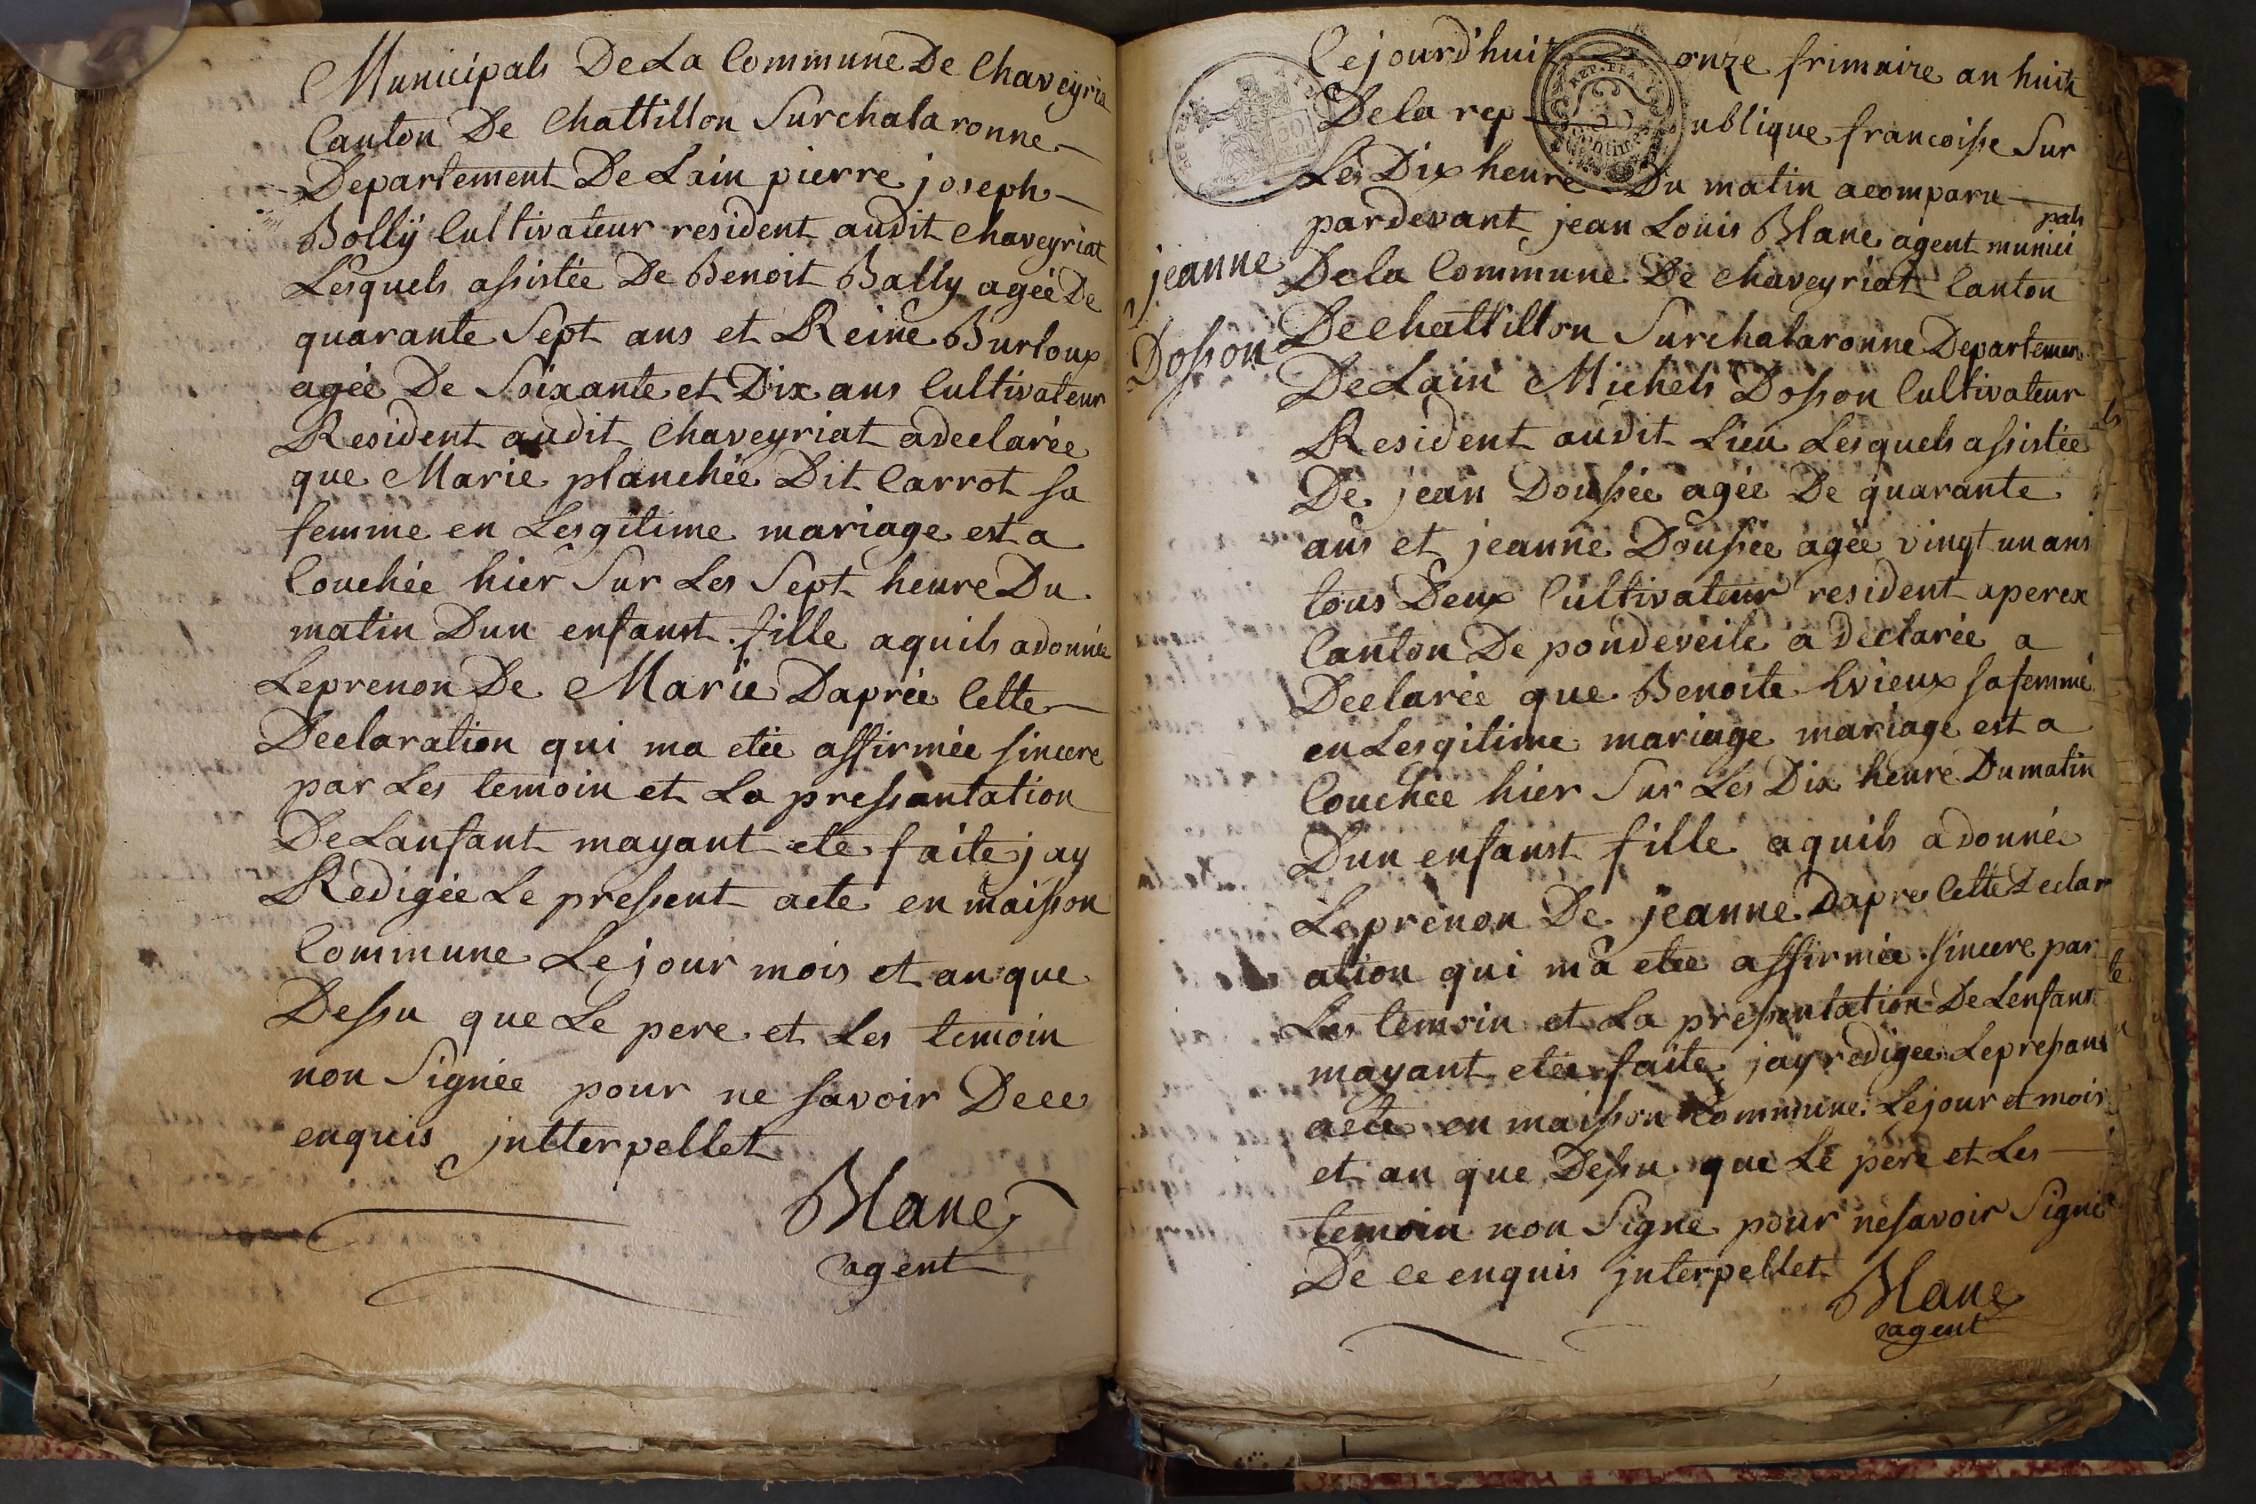 Municipals De La Commune De Chaveyria
Canton De Chattillon Surchalaronne
Departement De Lain pierre joseph
Bollÿ Cultivateur resident audit Chaveyriat
Lesquels assistée De Benoit Bally agée De
quarante Sept ans et Reine Burloup
agée De Soixante et Dix ans Cultivateur
Resident audit Chaveyriat a declarée
que Marie planchée Dit Carrot sa
femme en Lesgitime mariage est a
Couchée hier Sur Les Sept heure Du
matin Dun enfanst fille a quils a donnée
Le prenon De Marie Daprée Cette
Declaration qui ma etée affirmée sincere
par Les temoin et La pressantation
De Lansant mayant ete faite jay
Redigée Le pressent acte en maisson
Commune Le jour mois et an que
Dessu que Le pere et Les temoin
non Signée pour ne savoir De ce
enquis jntterpellet
Blanc
agent
Cejourd'huit onze frimaire an huit
De la rep ublique francoisse Sur
Les Dix heure Du matin a comparu
pardevant jean Louis Blanc agent munici
pals
De la Commune De Chaveyriat Canton
De Chattillon Surchalaronne Departemen
De Lain Michels Dosson Cultivateur
Resident audit Lieu Lesquels assistée
De jean Doussée agée De quarante
ans et jeanne Doussée agée vingt un ans
tous Deux Cultivateur resident a perex
Canton De pondeveile a declarée a
Declarée que Benoite sa femme
en Lesgitime mariage mariage est a
Couchée hier Sur Les Dix heure Du matin
Dun enfanst fille a quils a donnée
Le prenon De jeanne Dapres Cette Declar
ation qui ma etée affirmée sincere par
Les temoin et La pressentation De Lenfant
mayant etée faite jay redigée Le pressant
acte en maisson Commune Le jour et mois
et an que Dessu que Le pere et Les
temoin non Signe pour ne savoir Signé
De ce enquis jnterpellet
Blanc
agent
jeanne
Dosson
REP. FRA.
30
centimes